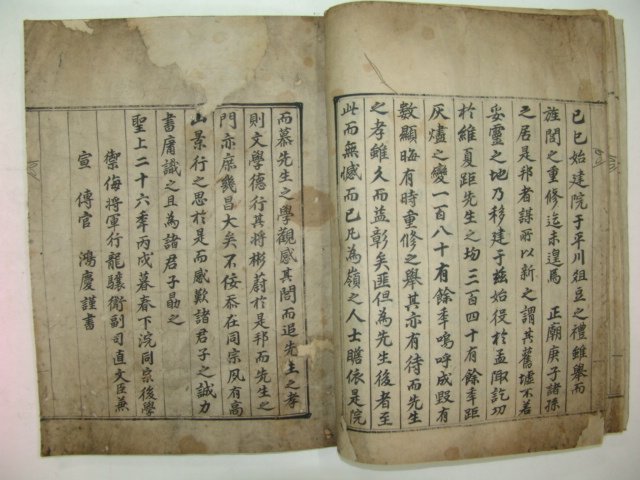 己巳始建院于平川俎豆之禮雖擧而
旌閭之重修迄未遑焉 正廟庚子諸孫
之居是邦者謀所以新之謂其舊墟不若
妥靈之地乃移建于玆始役於孟陬訖功
於維夏距先生之均三百四十有餘年距
灰燼之變一百八十有餘年嗚呼成毀有
數顯晦有時重修之擧其亦有待而先生
之孝雖久而益彰矣匪但為先生後者至
此而無憾而已凡為嶺之人士瞻依是院
而慕先生之學觀感其閭而追先生之孝
則文學德行其將彬蔚於是邦而先生之
門亦庶幾昌大矣不佞忝在同宗夙有高
山景行之思於是而感歎諸君子之誠力
書庸識之且為諸君子勗之
聖上二十六年丙戌暮春下浣同宗後學
禦侮將軍行龍驤衛副司直文臣兼
宣傳官 鴻慶謹書